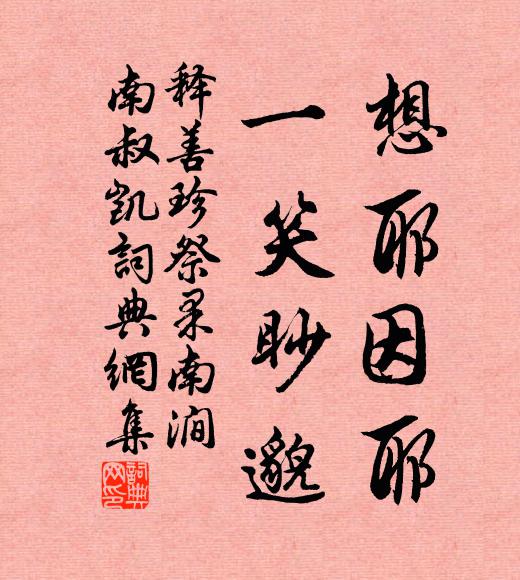 想耶因耶
一笑眇邈
释善珍祭杲南涧
南叔凯詞典網集
詞典网印